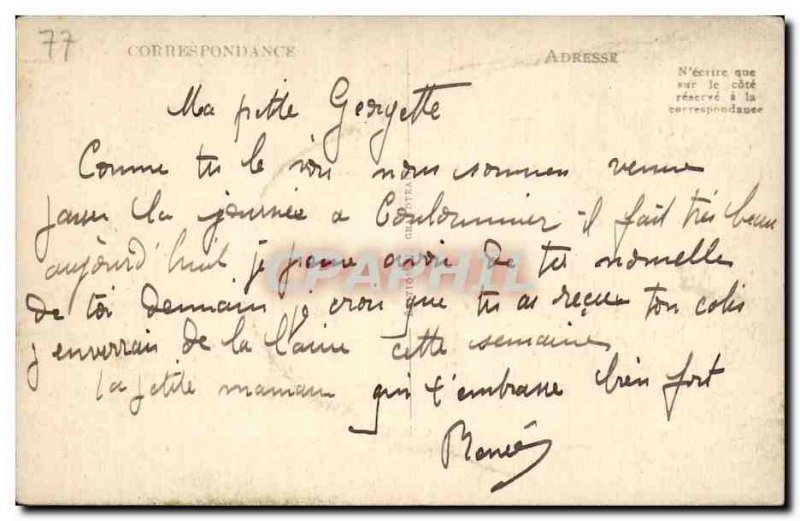 77
CORRESPONDANCE
ADRESSE
N'écrire que
sur le côté
réservé à la
correspondance
Ma petite Georgette
Comme tu le vois nous sommes venue
passer la journée a Coulommier il fait très beau
aujourd'huit je pense avoir de tes nouvelle
de toi demain je crois que tu as reçue ton colis
j'enverrais de la laine cette semaine
ta petite maman qui t'embrasse bien fort
CPAPHIL